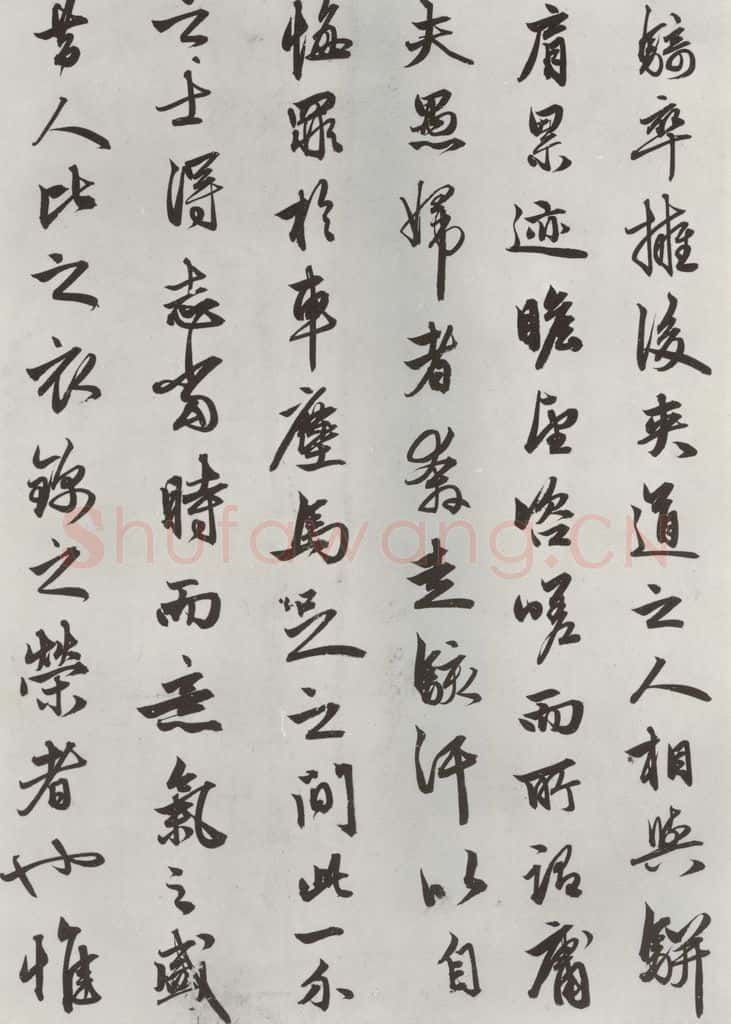 騎卒擁後夾道之人相與駢
肩累迹瞻望咨嗟而所謂庸
夫愚婦者奔走駭汗以自
悔罪於車塵馬足之間此一介
之士得志當時而意氣之盛
昔人比之衣錦之榮者也惟
Shufawang.CN